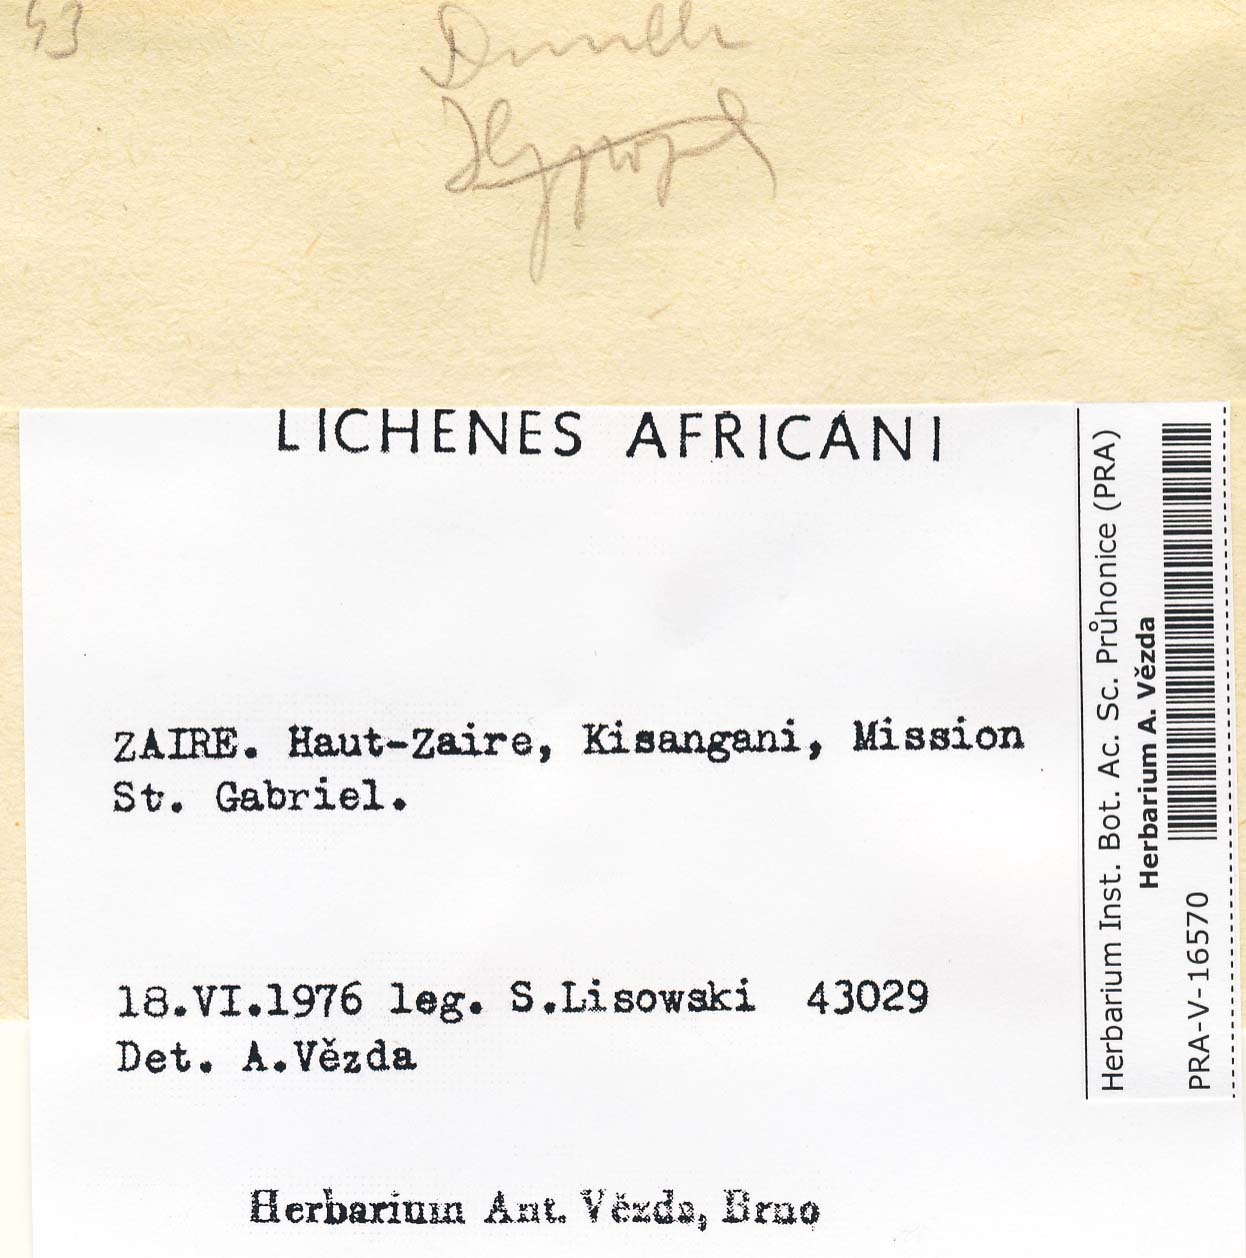 43
LICHENES AFRICANI
ZAIRE. Haut-Zaire, Kisangani, Mission
St. Gabriel.
18.VI.1976 leg. S.Lisowski 43029
Det. A.Vězda
Herbarium Ant. Vězda, Brno
Herbarium Inst. Bot. Ac. Sc. Průhonice (PRA)
Herbarium A. Vězda
PRA-V-16570